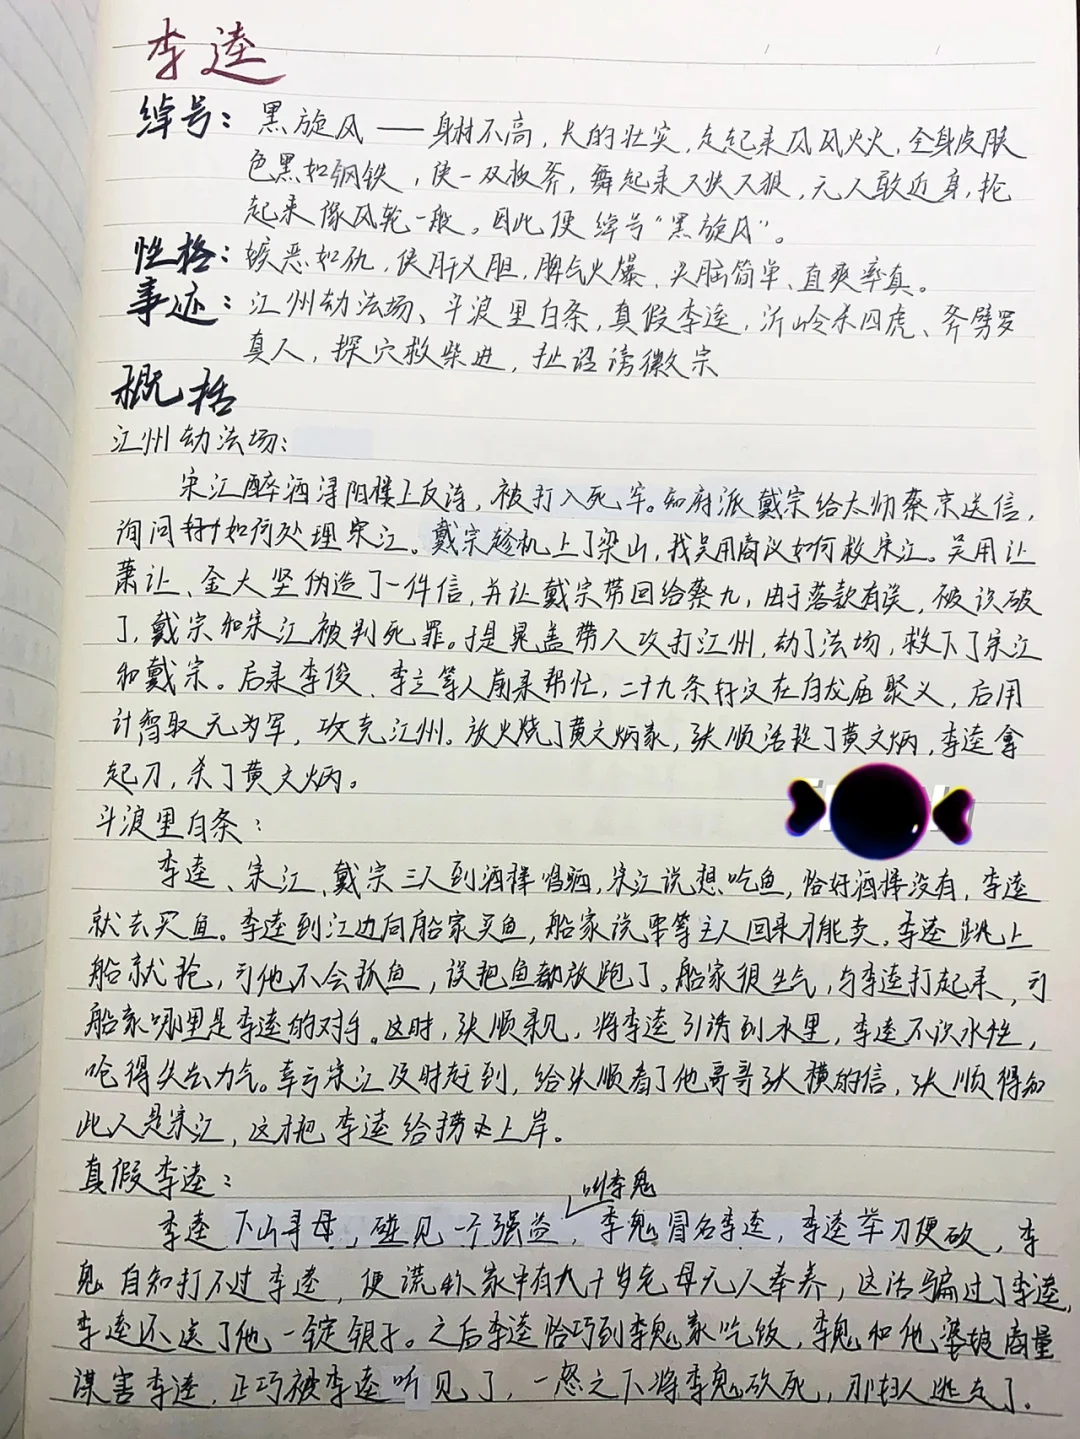 李逵
绰号：黑旋风——身材不高，大的壮实，走起来风风火火，全身皮肤
色黑如钢铁，使一双板斧，舞起来又快又狠，无人敢近身，抡
起来像风轮一般。因此便绰号“黑旋风”。
性格：嫉恶如仇，侠肝义胆，脾气火爆、头脑简单、直爽率真。
事迹：江州劫法场、斗浪里白条，真假李逵，沂岭杀四虎、斧劈罗
真人，探穴救柴进，扯诏谤徽宗
概括
江州劫法场：
宋江醉酒浔阳楼上反诗，被打入死牢。知府派戴宗给太师蔡京送信，
询问如何处理宋江。戴宗趁机上了梁山，找吴用商议如何救宋江。吴用让
萧让、金大坚伪造了一件信，并让戴宗带回给蔡九，由于落款有误，被识破
了，戴宗和宋江被判死罪。于是晁盖带人攻打江州，劫了法场，救下了宋江
和戴宗。后来李俊、李立等人前来帮忙，二十九条好汉在白龙庙聚义，后用
计智取无为军，攻克江州。放火烧了黄文炳家，张顺活捉了黄文炳，李逵拿
起刀，杀了黄文炳。
斗浪里白条：
李逵、宋江、戴宗三人到酒楼喝酒，宋江说想吃鱼，恰好酒楼没有，李逵
就去买鱼。李逵到江边向船家买鱼，船家说要等主人回来才能卖，李逵跳上
船就抢，可他不会抓鱼，误把鱼都放跑了。船家很生气，与李逵打起来，可
船家哪里是李逵的对手。这时，张顺来见，将李逵引诱到水里，李逵不识水性，
呛得失去力气。幸亏宋江及时赶到，给张顺看了他哥哥张横的信，张顺得知
此人是宋江，这才把李逵给捞上岸。
真假李逵：
叫李鬼
李逵下山寻母，碰见一个强盗，李鬼冒名李逵，李逵举刀便砍，李
鬼自知打不过李逵，便谎称家中有九十岁老母无人奉养，这话骗过了李逵，
李逵还送了他一锭银子。之后李逵恰巧到李鬼家吃饭，李鬼和他婆娘商量
谋害李逵，正巧被李逵听见了，一怒之下将李鬼砍死，那妇人逃走了.